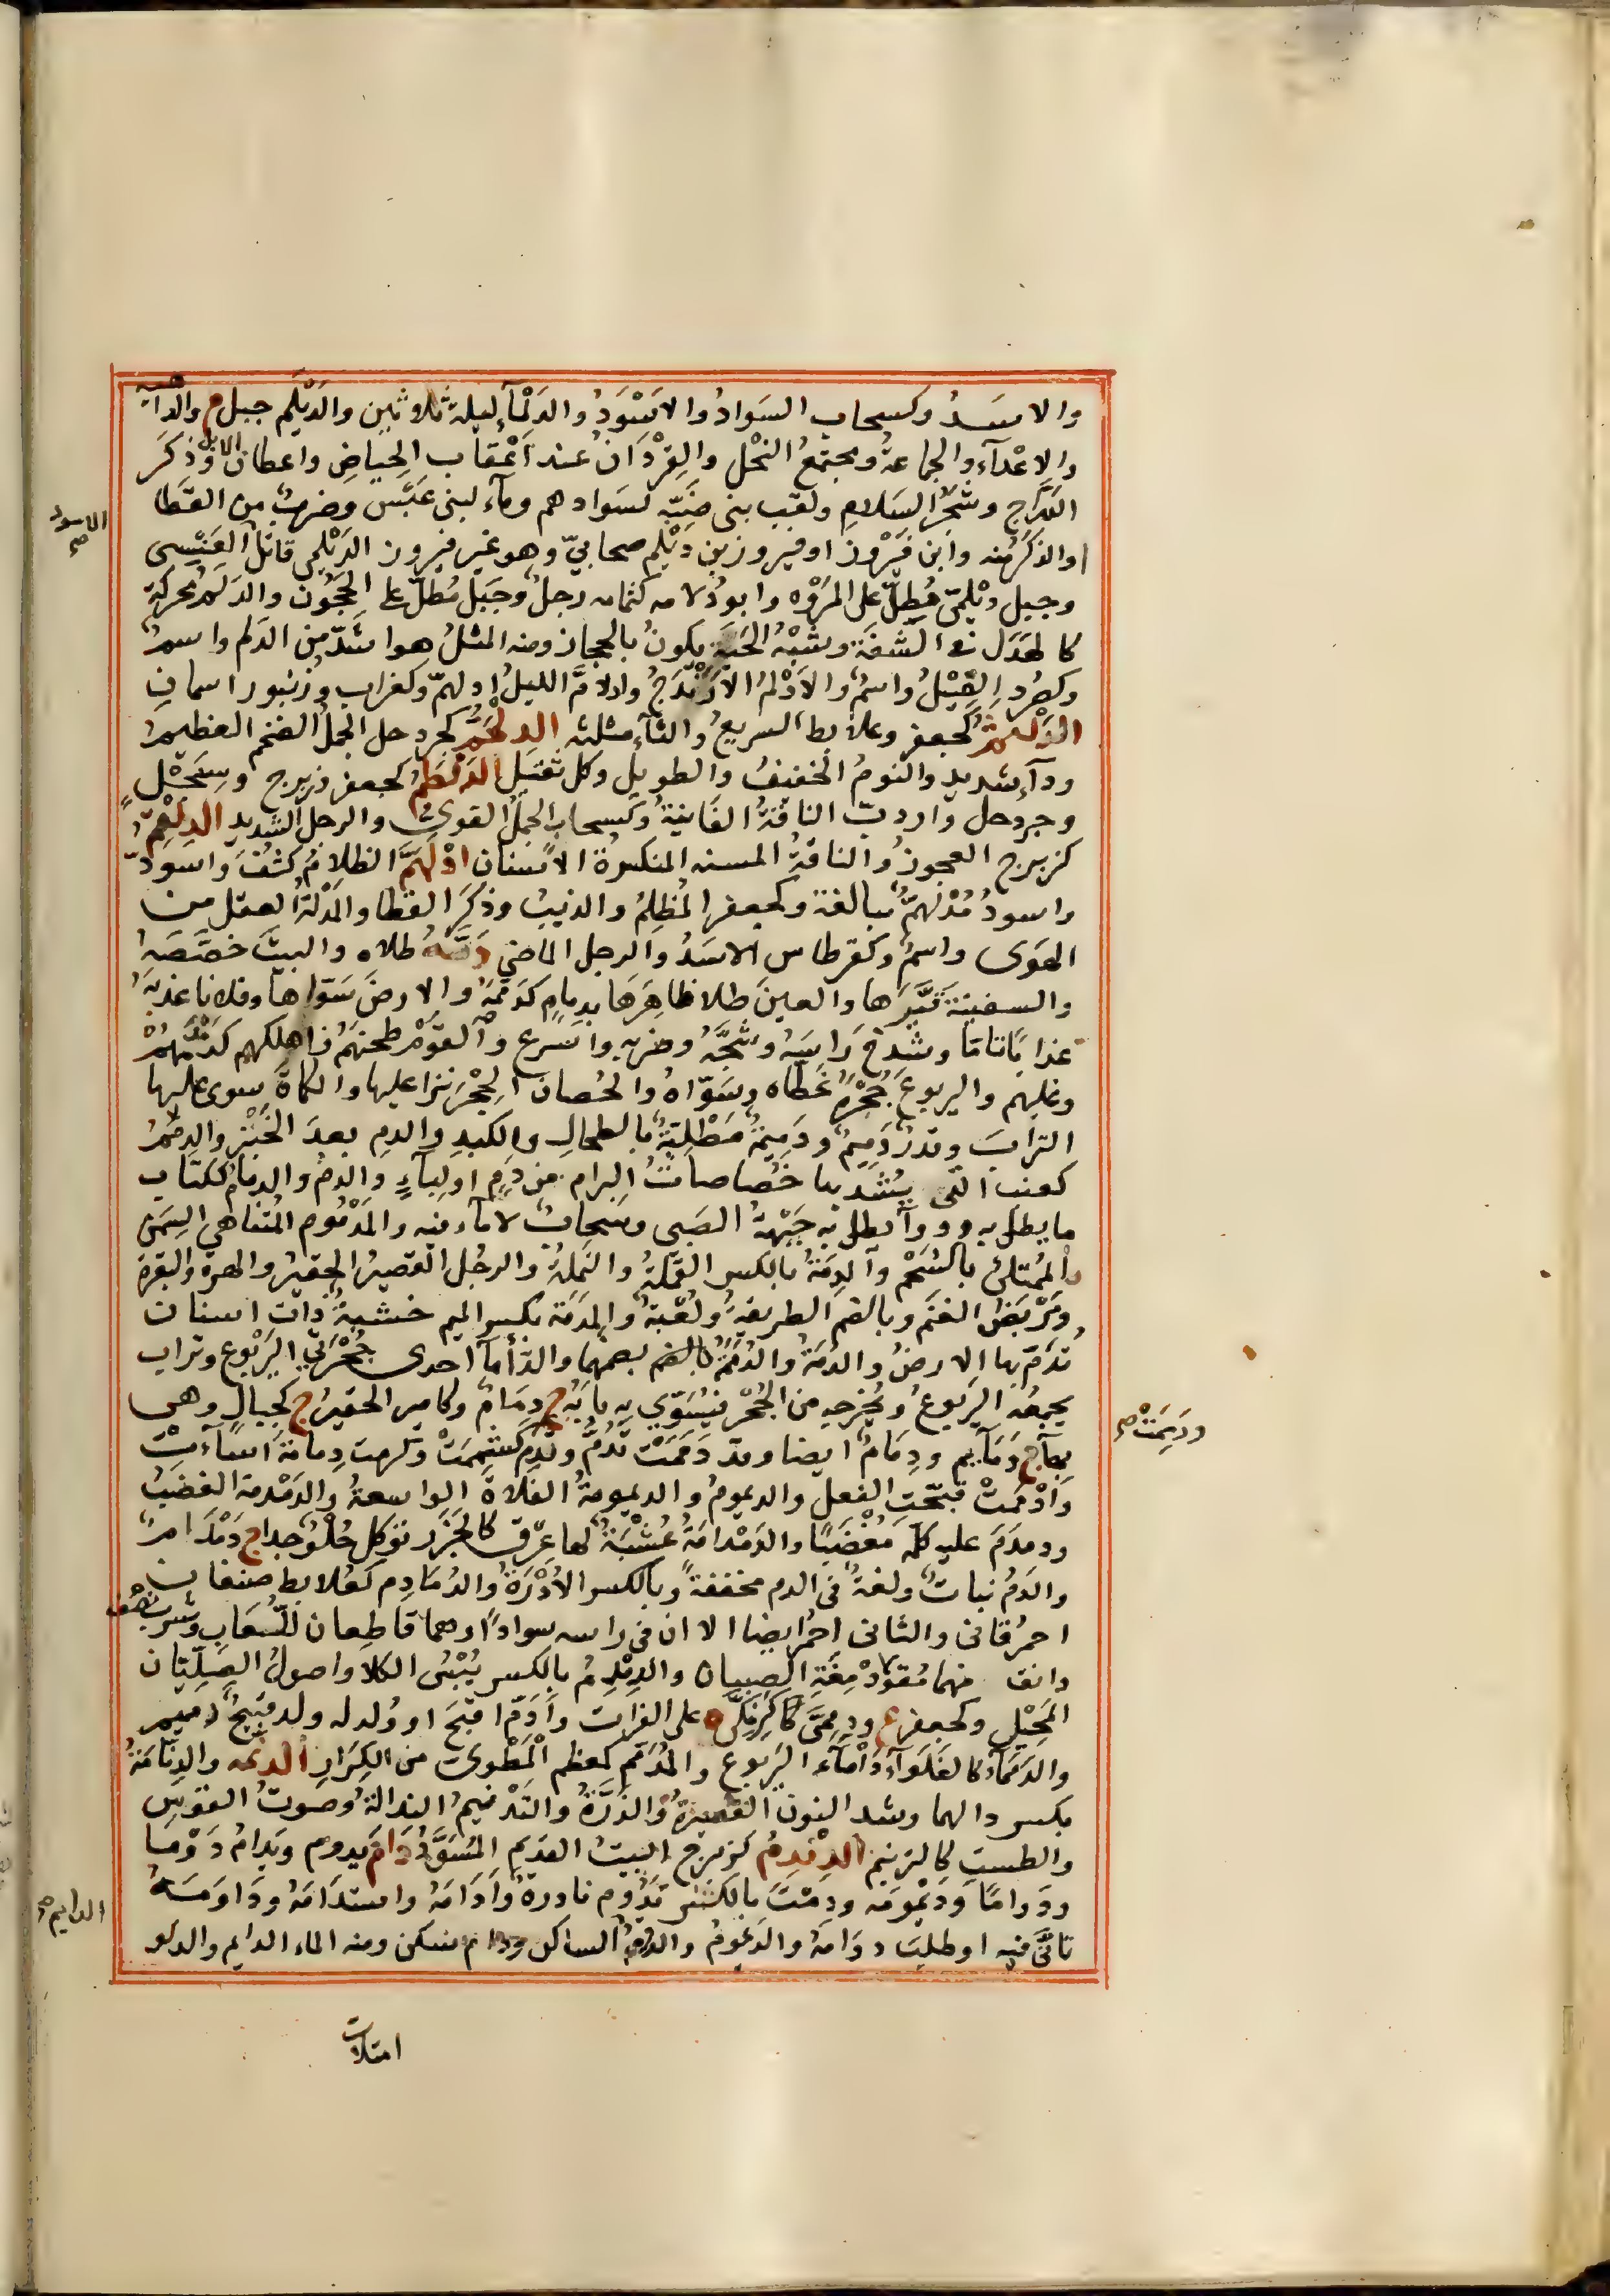 والاسَدُ وكسحاب السَوادُ والاَسْوَدُ والدَلْمَآءُ ليلة ثلاثين والدَيْلَم جبل م والداهية
والاعْدآء والجماعةُ ومجتمعُ النَحْل والقِرْدَانُ عند اَعْقاب الحِياضِ واعطان الابل وذَكَر
الدُرَّاج وشَجَرُ السَلامِ ولقب بنى ضَبّة لسَوادهم ومآء لبنى عَبْس وضربٌ من القَطا
او الذَكَرُ منه وابن فَيْرُوز او فيروز بن دَيْلَم صحابيّ وهو غير فيروز الدَيْلَمى قاتل العَنْسى
الاسود صح
وجبل دَيْلَمِىّ مُطِلّ على المَرْوَه وابو دُلامه كثمامه رجلٌ وجَبَلٌ مُطلّ على الحَجُون والدَلَمُ محركةً
كالهَدَل فى الشَفَة وشِبْهُ الحَيَة يكونُ بالحجاز ومنه المثلُ هو اشَدّ من الدَلَم واسمٌ
وكصُرد الفِيْلُ واسمٌ والاَدْلمُ الاَرَنْدَجُ وادلامَّ الليلُ ادلهمّ وكغراب وزنبور اسمانِ
الدَلْثَم كجعفر وعلابط السريعُ والثآء مثلثه الدِلْخَمُّ كجردحل الجملُ الضخم العظيمُ
ودآء شديد والنومُ الخفيفُ والطويل وكل ثقيل الدَلْظَمُ كجعفر وزبرج وسِبَحْلٍ
وجردحل واردبّ الناقةُ الفَانيةُ وكسحاب الجملُ القوىّ والرجل الشديد الدِلْقِمُ
كزبرج العجوزُ والناقةُ المسنه المنكسرة الاسنان ادْلَهَمَّ الظلامُ كثُفَ واسودّ
واسودُ مُدْلَهِمٌّ مبالغة وكجعفر المُظلِمُ والذئيب وذَكَرُ القَطا والمُدَلَّهُ العقل من
الهَوى واسمٌ وكقرطاس الاسَدُ والرجل الماضى دَمَّهُ طلاه والبيتَ جصَّصَهُ
والسفينةَ قَيَّرَها والعينَ طلا ظاهِرَها بدِمامٍ كدَمَّمَهُ والارضَ سَوّاها وفلانا عذبَهُ
عذابًا تامّا وشدخَ رَاسَهُ وشَجَّهُ وضربه واسْرع والقومَ طحنَهُم فاهلكهم كدَمْدَمَهُمْ
وعليهم واليربوعُ جُحْرَهُ غَطّاه وسَوّاهُ والحُصانُ الحِجْرَ نزا عليها والكماةَ سوى عليها
الترابَ وقدْرٌ دَمِيمٌ ودَمِيمَةٌ مَطْلِيّةٌ بالطحالِ والكبدِ والدمِ بعدَ الجَبْر والدِمَمُ
كعنب التى يشد بها خصاصاتُ البرام من دَمٍ او لِبآءٍ والدمّ والدِمامُ ككتاب
ما يطلى به ودوآء يطلى به جَبْهةُ الصَبى وسَحابٌ لا مآء فيه والمَدْمُوم المُتناهى السِمَنِ
المُمْتلئ بالشَحْم والدِمّةُ بالكسر القَمْلةُ والنملةُ والرجُل القصيرُ الحقيرُ والهرة والبقرةُ
ومَرْبضُ الغنَم وبالضم الطريقةُ ولُعْبَةٌ والمِدَمّة بكسر الميم خشبةٌ ذات اسنان
تُدَمّ بها الارضُ والدُمّةُ والدُمَمَةُ بالضم بضمهما والدَّأمآءُ احدى جِحَرَةِ اليَرْبُوع وتراب
يجمعُه اليربوعُ ويُخرجه من الجُحْر فيُسَوِّى به بابَهُ ج دِمَامٌ وكامير الحقيرُ ج كجبالٍ وهى
بهآء ج دَمَآيِم ودِمَامٌ ايضا وقد دَمَمْتَ تَدُمُّ وتَدِمُّ كشَمِمْتَ وكرمت دِمامَةً اَسأءتْ
ودَمِمْتْ صح
واَدْمَمْتَ قبّحتَ الفعل والديمومُ والديمومةُ الفَلاةُ الواسعةُ والدَمْدمة الغضبُ
ودمدم عليه كلّمه مُغْضبًا والدَمْدامَةُ عُشْبَةٌ لها عِرْق كالجزر تؤكل حُلْوٌ جدا ج دَمْدَامٌ
والدَمُ نباتٌ ولغةٌ فى الدم مخففةً وبالكسر الاُدْرَةُ والدُمَادِم كعُلابط صنفان
احمرُ قانى والثانى احمرُ ايضا الا ان فى راسه سوادًا وهما قاطعان للُعابِ وشرب نصف
دانق منهما مُقوّ لادْمِغَةِ الصبيان والدِمْدِمُ بالكسر يُبْسُ الكلا واصولُ الصِلِّيَان
المُحِيلِ وكجعفر ع ودِمِمَّى كالزِمِكَّى ة على الفرات واَدَمَّ اقبَحَ او وُلد له ولد قبيحٌ دميم
والدَمماءُ كالغلواء دامآء اليَربوع والمُدَمَّم كمعظم المَطوىّ من الكِرَار الدِنّمه والدِنّامَةُ
بكسر دالهما وشد النون القصيرةُ والذَرَّةُ والتَدْنيمُ النذالةُ وصوتُ القَوسِ
والطستِ كالترنيم الدِنْدِمُ كزبرج النبتُ القديم المُسْوَدُّ دَامَ يدوم ويَدامُ دَوْمَا
ودَوامًا ودَيْمُومَه ودِمْتَ بالكَسْر تَدُوم نادرةٌ واَدَامَهُ واستدَامَهُ ودَاوَمَهُ
تانَّى فيه او طلبَ دوَامَهُ والدَيمُومُ والدومُ الساكن ودام سكن ومنه الماء الدايم والدلو
الدايم صح
امتلات